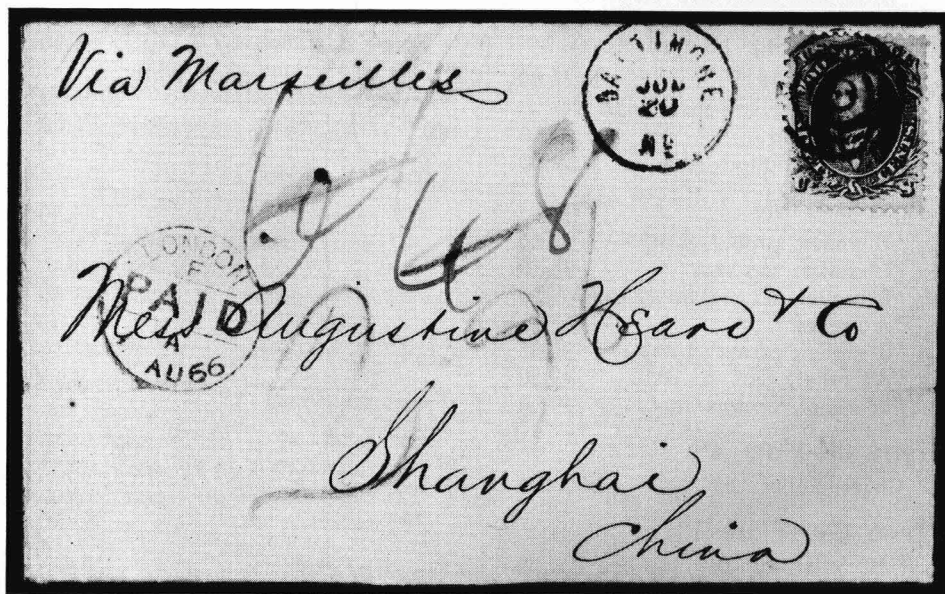 Via Marseilles
BALTIMORE
JUL
20
MD
CENTS
48
LONDON
F
PAID
A
AU 66
Mess Augustine Heard & Co
Shanghai
China